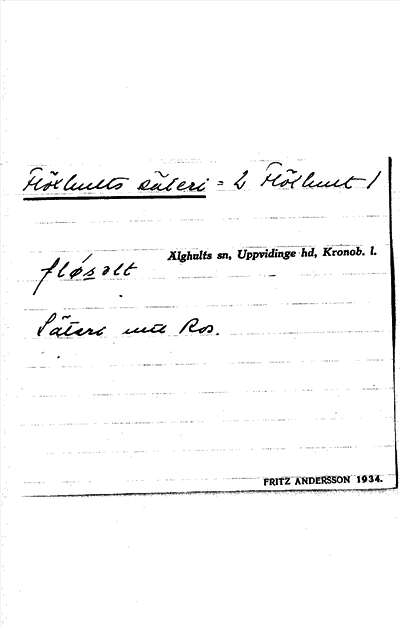 Flöxhults säteri = 2 Flöxhult 1
Älghults sn, Uppvidinge hd, Kronob. l.
fløsølt
Säteri
FRITZ ANDERSSON 1934.